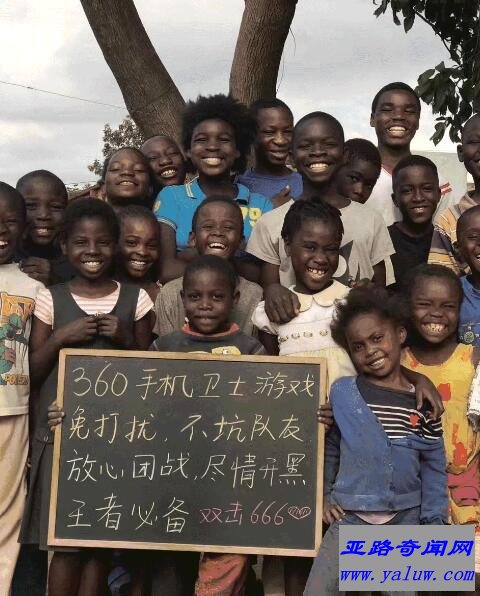 360手机卫士游戏
免打扰,不坑队友
放心团战,尽情开黑
王者必备 双击666
亚路奇闻网
www.yaluw.com